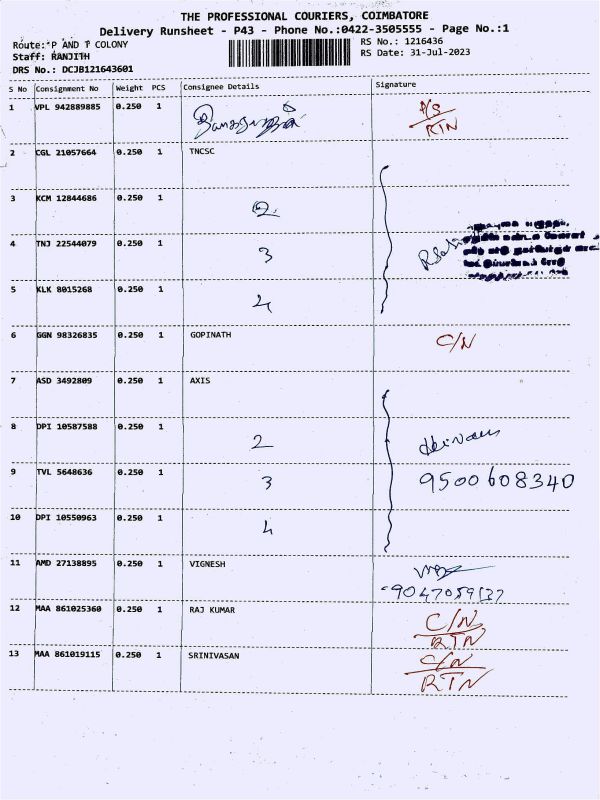 THE PROFESSIONAL COURIERS, COIMBATORE
Delivery Runsheet - P43 - Phone No.:0422-3505555 - Page No.:1
Route: P AND T COLONY
RS No.: 1216436
Staff: RANJITH
RS Date: 31-Jul-2023
DRS No.: DCJB121643601
S No Consignment No Weight PCS Consignee Details Signature
1 VPL 942889885 0.250 1
RTN
2 CGL 21057664 0.250 1 TNCSC
3 KCM 12844686 0.250 1 2
4 TNJ 22544079 0.250 1 3
5 KLK 8015268 0.250 1 4
6 GGN 98326835 0.250 1 GOPINATH C/N
7 ASD 3492809 0.250 1 AXIS
8 DPI 10587588 0.250 1 2
9 TVL 5648636 0.250 1 3 9500608340
10 DPI 10550963 0.250 1 4
11 AMD 27138895 0.250 1 VIGNESH
12 MAA 861025360 0.250 1 RAJ KUMAR C/N
RTN
13 MAA 861019115 0.250 1 SRINIVASAN C/N
RTN